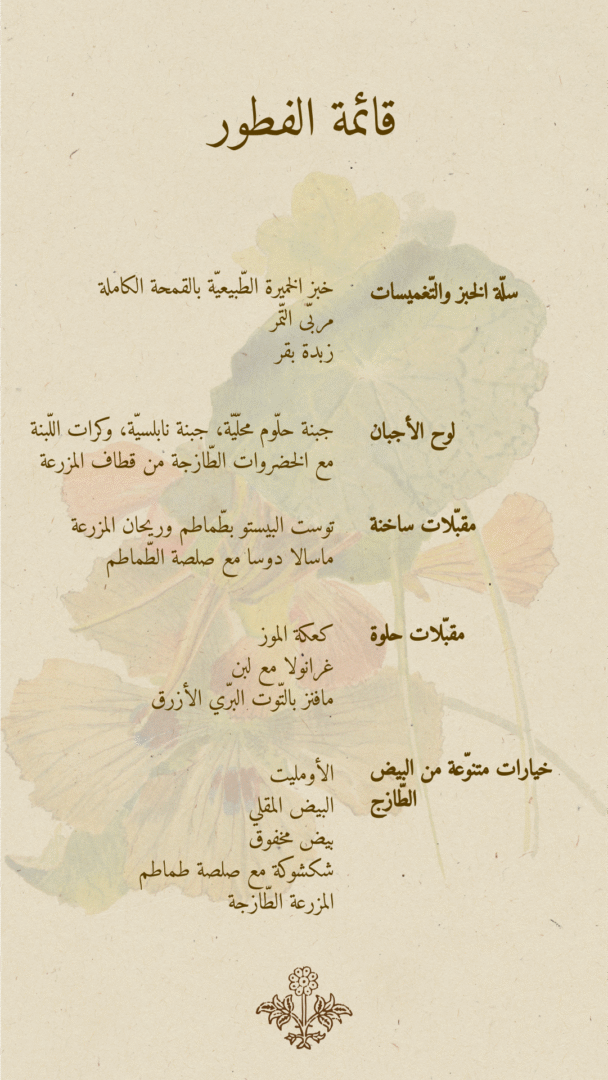 قائمة الفطور
سلّة الخبز والتّغميسات
خبز الخميرة الطّبيعيّة بالقمحة الكاملة
مربّى التّمر
زبدة بقر
لوح الأجبان
جبنة حلّوم محلّيّة، جبنة نابلسيّة، وكرات اللّبنة
مع الخضروات الطّازجة من قطاف المزرعة
مقبّلات ساخنة
توست البيستو بطّماطم وريحان المزرعة
ماسالا دوسا مع صلصة الطّماطم
مقبّلات حلوة
كعكة الموز
غرانولا مع لبن
مافنز بالتّوت البرّي الأزرق
خيارات متنوّعة من البيض
الطّازج
الأومليت
البيض المقلي
بيض مخفوق
شكشوكة مع صلصة طماطم
المزرعة الطّازجة